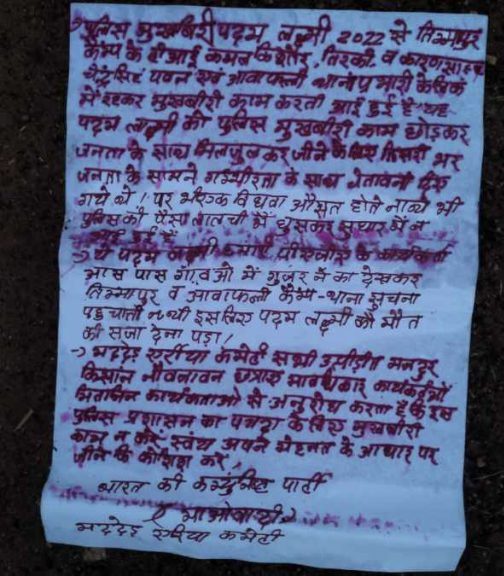 पुलिस मुखबीरी पदम लक्ष्मी 2022 से तिम्मापुर
केम्प के डीआई कमल किशोर, तिरकी व कारण साहब
चेंद्रसिह पवन एवं आवापल्ली थाना प्रभारी के लिंक
में रहकर मुखबीरी काम करती आई हुई है। यह
पदम लक्ष्मी को पुलिस मुखबीरी काम छोडकर
जनता के साथ मिलजुलकर जीने के लिए तिसरी भर
जनता के सामने गम्भीरता के साथ चेतावनी दिए
गये थे। पर विधवा औरत होते नाते भी
पुलिस की पैसा लालची में घुसकर सुधार में न
आई हुई है
ये पदम लक्ष्मी हमारे पीएलजीए के कार्यकर्ता
आस पास गांवओ में गुजर ने का देखकर
तिम्मापुर व आवापल्ली कैम्प-थाना सुचना
पहुचाती न थी इसलिए पदम लक्ष्मी को मौत
की सजा देना पड़ा।
-> मद्देड़ एरीया कमेटी सभी उत्पीड़ीत मजदुर
किसान नौवजावन छात्राएं कार्यकर्ताओं
कार्यकर्ताओ से अनुरोध करता है कि इस
पुलिस प्रशासन का के लिए मुखबीरी
काम न करे स्वयं अपने मेहनत के आधार पर
जीने कि कोशिश करें।
भारत की कम्युनिस्ट पार्टी
(माओवादी)
मद्देड़ एरिया कमेटी